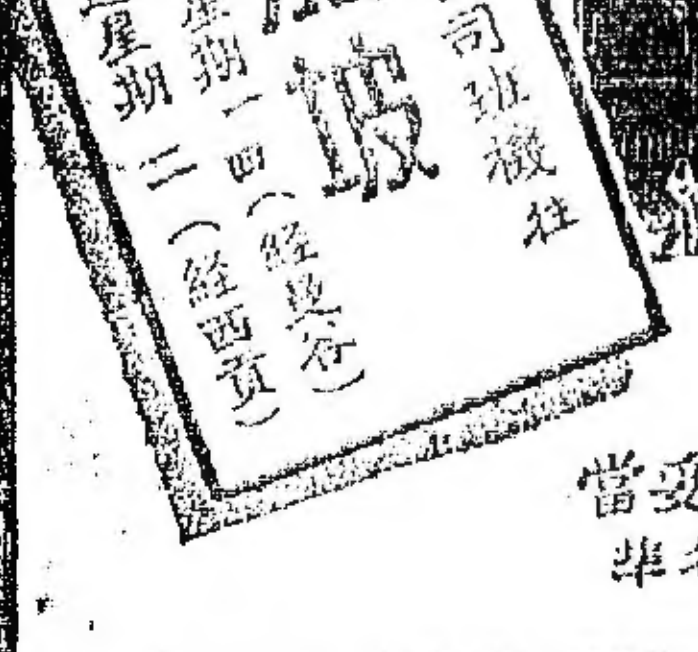 司班機往
坡
星期一四(經曼谷)
星期二(經西貢)
當